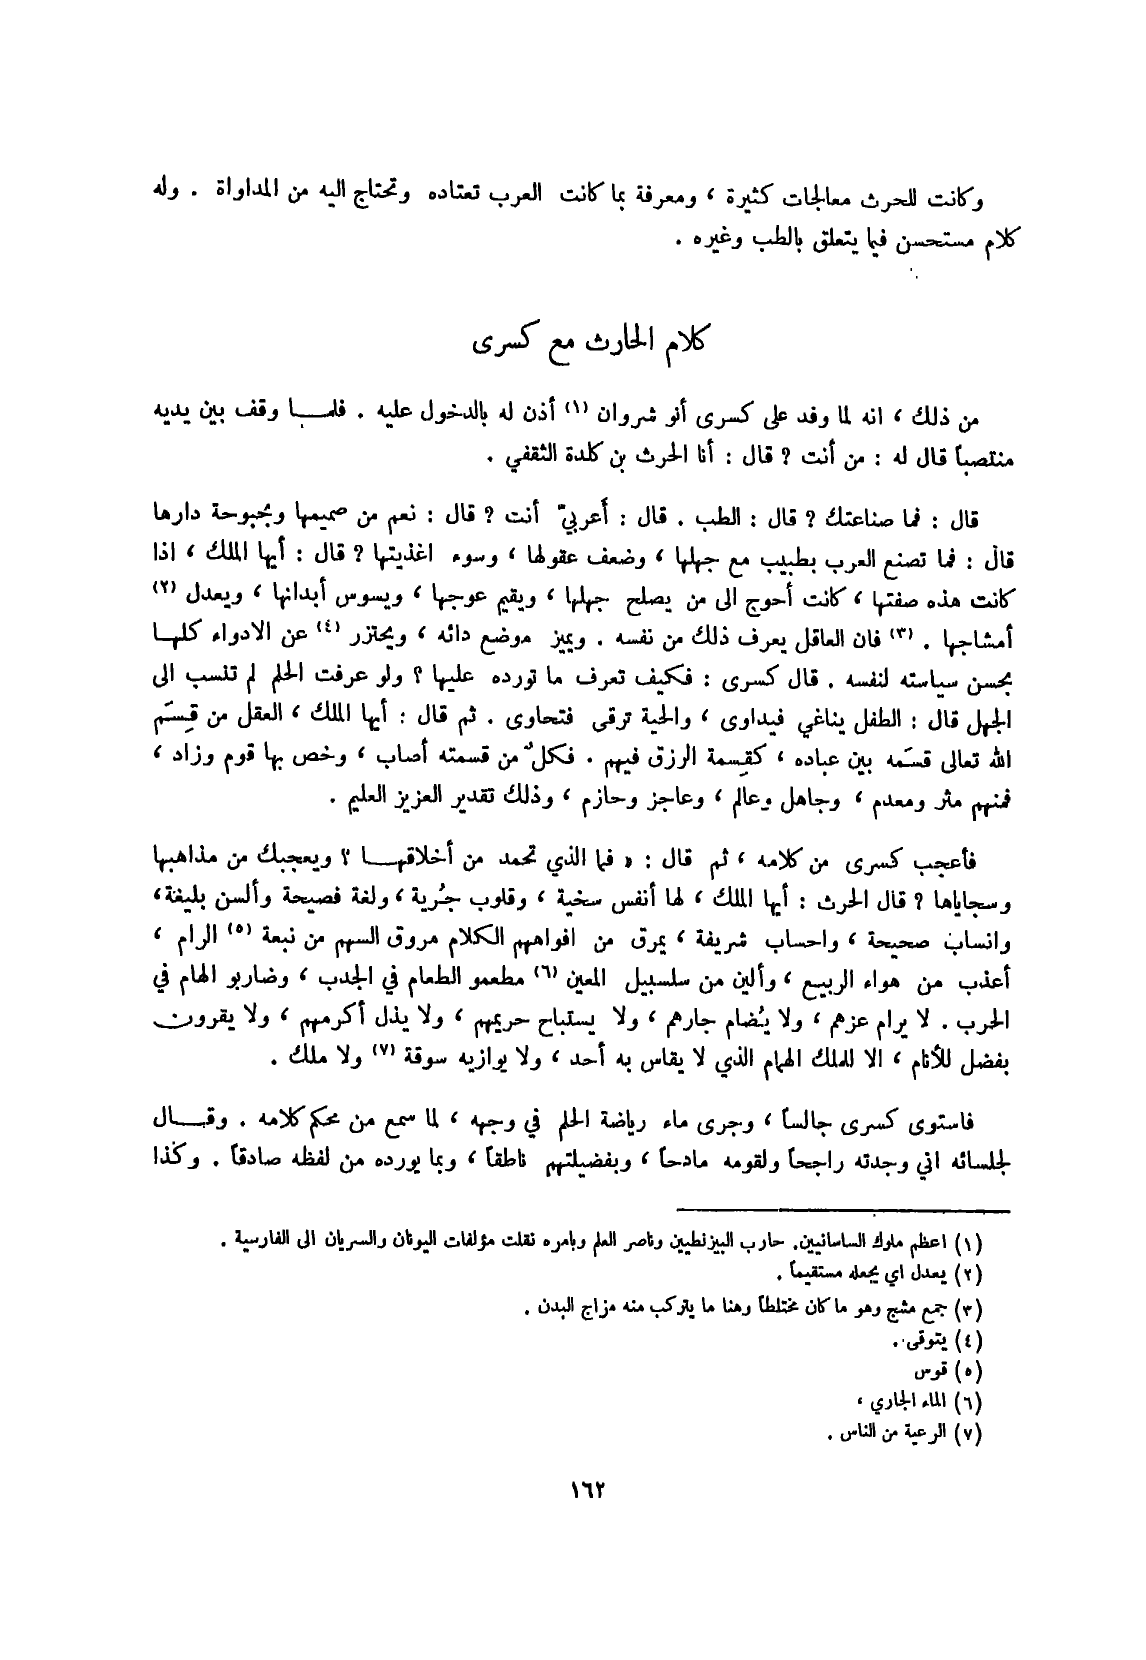 وكانت للحرث معالجات كثيرة ، ومعرفة بما كانت العرب تعتاده وتحتاج اليه من المداواة . وله
كلام مستحسن فيما يتعلق بالطب وغيره .
كلام الحارث مع كسرى
من ذلك ، انه لما وفد على كسرى أنو شروان (١) أذن له بالدخول عليه . فلمـــا وقف بين يديه
منتصباً قال له : من أنت ? قال : أنا الحرث بن كلدة الثقفي .
قال : فما صناعتك ? قال : الطب . قال : أعربيّ أنت ? قال : نعم من صميمها وبحبوحة دارها
قال : فما تصنع العرب بطبيب مع جهلها ، وضعف عقولها ، وسوء اغذيتها ? قال : أيها الملك ، اذا
كانت هذه صفتها ، كانت أحوج الى من يصلح جهلها ، ويقيم عوجها ، ويسوس أبدانها ، ويعدل (٢)
أمشاجها . (٣) فان العاقل يعرف ذلك من نفسه . ويميز موضع دائه ، ويحتزر (٤) عن الادواء كلهـا
بحسن سياسته لنفسه . قال كسرى : فكيف تعرف ما تورده عليها ؟ ولو عرفت الحلم لم تنسب الى
الجهل قال : الطفل يناغي فيداوى ، والحية ترقى فتحاوى . ثم قال : أيها الملك ، العقل من قِسَم
الله تعالى قسَمه بين عباده ، كقِسمة الرزق فيهم . فكلٌ من قسمته أصاب ، وخص بها قوم وزاد ،
فمنهم مثر ومعدم ، وجاهل وعالم ، وعاجز وحازم ، وذلك تقدير العزيز العليم .
فأعجب كسرى من كلامه ، ثم قال : « فما الذي تحمد من أخلاقهـــا ؟ ويعجبك من مذاهبها
وسجاياها ? قال الحرث : أيها الملك ، لها أنفس سخية ، وقلوب جُرية ، ولغة فصيحة وألسن بليغة،
وانساب صحيحة ، واحساب شريفة ، يمرق من افواههم الكلام مروق السهم من نبعة (٥) الرام ،
أعذب من هواء الربيع ، وألين من سلسبيل المعين (٦) مطعمو الطعام في الجدب ، وضاربو الهام في
الحرب . لا يرام عزهم ، ولا يُضام جارهم ، ولا يستباح حريمهم ، ولا يذل أكرمهم ، ولا يقرون
بفضل للأنام ، الا للملك الهمام الذي لا يقاس به أحد ، ولا يوازيه سوقة (٧) ولا ملك .
فاستوى كسرى جالساً ، وجرى ماء رياضة الحلم في وجهه ، لما سمع من محكم كلامه . وقـــال
لجلسائه اني وجدته راجحاً ولقومه مادحاً ، وبفضيلتهم ناطقاً ، وبما يورده من لفظه صادقاً . وكذا
(١) اعظم ملوك الساسانيين. حارب البيزنطيين وناصر العلم وبامره نقلت مؤلفات اليونان والسريان الى الفارسية .
(٢) يعدل اي يجعله مستقيماً .
(٣) جمع مشج وهو ما كان مختلطاً وهنا ما يتركب منه مزاج البدن .
(٤) يتوقى .
(٥) قوس
(٦) الماء الجاري ،
(٧) الرعية من الناس .
١٦٢